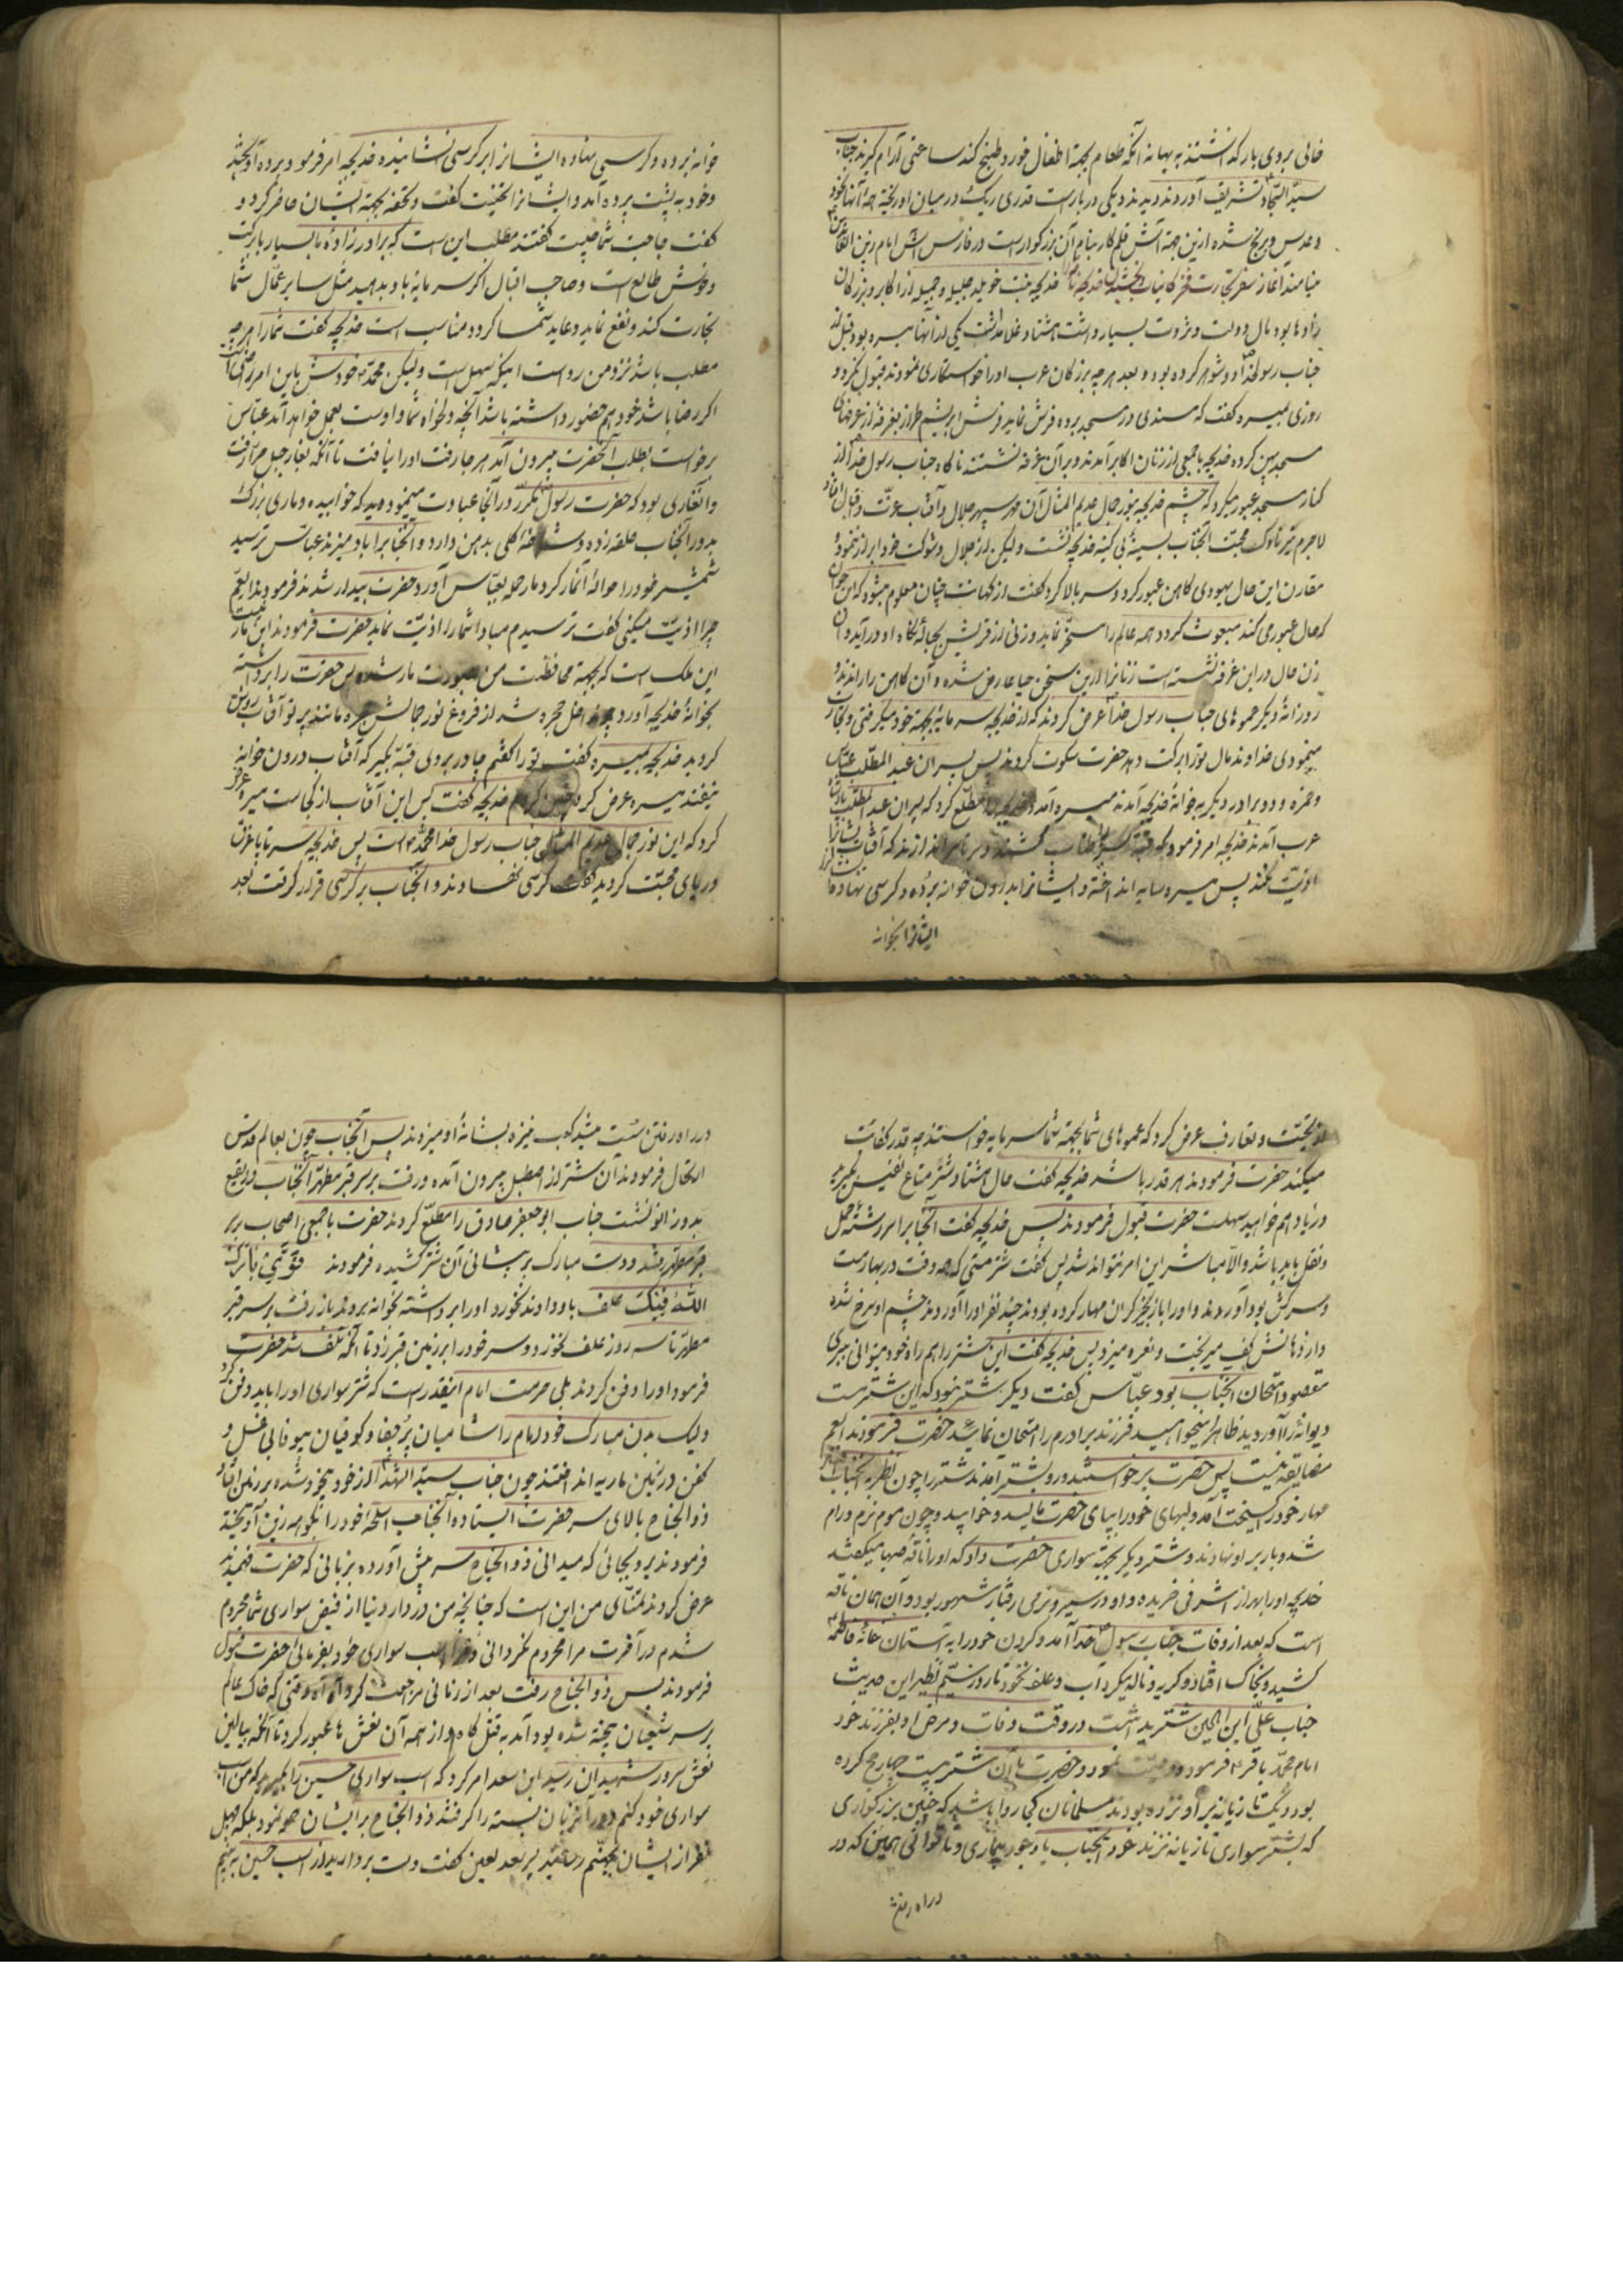 خالی بر روی بار گذاشتند به بهانه آنکه طعام بجهة اطفال خورد طبخ کند ساعتی آرام گیرند جناب
سید السجاد تشریف آوردند دیدند دیکی در بار است قدری ریک در میان او ریخته همه آنها نخود
و عدس و برنج شده ازین جهة آش قلم کار بنام آن بزرگوار است در فارس آش امام زین العابدین
مینامند آغاز سفر تجارت فخر کاینات خدیجه بنت خویلد جلیله و جمیله از اکابر و بزرگان
زادها بود مال و دولت و ثروت بسیار داشت هشتاد غلام داشت یکی از آنها میسره بود قبل از
جناب رسولخدا دو شوهر کرده بود و بعد هر چه بزرگان عرب او را خواستکاری نمودند قبول نکرد و
روزی بمیسره گفت که مسندی در مسجد برده فرش نماید فرش ابریشم طراز بغرفه از غرفهای
مسجد پهن کرده خدیجه با جمعی از زنان اکابر آمدند و بر آن غرفه نشستند ناگاه جناب رسول خدا از
کنار مسجد عبور میکرد که چشم خدیجه بنور جمال عدیم المثال آن مهر سپهر جلال و آفتاب عزت و اقبال افتاد
لاجرم تیر ناوک محبت آنجناب بسینه بی کینه خدیجه نشست ولیکن از جلال و شوکت خود ابراز ننموده
مقارن این حال یهودی کاهن عبور کرد و سر بالا کرد گفت از کهانت چنان معلوم میشود که این جوان
که حال عبور می کند مبعوث گردد همه عالم را مسخر نماید و زنی از قریش بحباله نکاح او در آید و آن
زن حال در این غرفه نشسته است زنانرا ازین سخن حیا عارض شده و آن کاهن را راندند و
روزانه دیگر عموهای جناب رسول خدا عرض کردند که از خدیجه سرمایه بجهة خود میگرفتی و تجارت
مینمودی خداوند مال تو را برکت دهد حضرت سکوت کردند پس پسران عبد المطلب عباس
و حمزه و دو برادر دیگر به خوانه خدیجه آمدند میسره آمد و خدیجه را مطلع کرد که پسران عبد المطلب
عرب آمدند خدیجه امر فرمود که قبه اندازند که آفتاب ایشانرا
اذیت نکند پس میسره سایه انداخته و ایشانرا بدرون خوانه برده و کرسی نهاده
ایشانرا بخوانه
خوانه برده و کرسی نهاده ایشانرا بر کرسی نشانیده خدیجه امر فرمود پرده آویختند
و خود به پشت پرده آمد و ایشانرا تحیت گفت و تحفه بجهة ایشان حاضر کرد و
گفت حاجت شما چیست گفتند مطلب این است که برادر زاده ما بسیار بابرکت
و خوش طالع است و صاحب اقبال اگر سرمایه باو بدهید مثل سایر عمال شما
تجارت کند و نفع نماید و عاید شما گردد مناسب است خدیجه گفت شما را هر چه
مطلب باشد نزد من رواست اینکه سهل است ولیکن محمد خودش باین امر راضی است
اگر رضا باشد خود هم حضور داشته باشد آنچه دلخواه شما و اوست بعمل خواهد آمد عباس
برخواست بطلب آنحضرت بیرون آمد هر جا رفت او را نیافت تا آنکه بغار جبل حرا رفت
و آنغاری بود که حضرت رسول مکرر در آنجا عبادت مینمود دید که خوابیده و ماری بزرگ
بدور آنجناب حلقه زده و شاخه گلی بدهن دارد و آنجناب را باد میزند عباس ترسید
شمشیر خود را حواله آنمار کرد مار حمله بعباس آورد حضرت بیدار شدند فرمودند ای عم
چرا اذیت میکنی گفت ترسیدم مبادا شما را اذیت نماید حضرت فرمودند این مار نیست
این ملک است که بجهة محافظت من بصورت مار شده پس حضرت را برداشته
بخوانه خدیجه آورد چون داخل حجره شد از فروغ نور جمالش حجره مانند پرتو آفتاب روشن
گردید خدیجه بمیسره گفت تو را گفتم چادر بر روی قبه بگیر که آفتاب درون خوانه
نیفتد میسره عرض کرد چنین کردم خدیجه گفت پس این آفتاب از کجاست میسره عرض
کرد که این نور جمال عدیم المثال جناب رسول خدا محمد است پس خدیجه سر تا پا غرق
دریای محبت گردید گفت کرسی نهادند و آنجناب بر کرسی قرار گرفت بعد
از تحیت و تعارف عرض کرد که عموهای شما بجهة شما سرمایه خواستند چه قدر کفایت
میکند حضرت فرمودند هر قدر باشد خدیجه گفت مال هشتاد شتر متاع نفیس بگیرید
و زیاد هم خواهید سهلست حضرت قبول فرمودند پس خدیجه گفت آنجا بر امر رشته حمل
و نقل باید باشد والا مباشر این امر نتواند شد پس گفت شتر مستی که همه وقت در بهار مست
و سرکش بود آوردند و او را با زنجیر گران مهار کرده بودند چند نفر او را آوردند چشم او سرخ شده
و از دهانش کف میریخت و نعره میزد پس خدیجه گفت این شتر را هم راه خود میتوانی ببری
مقصود امتحان آنجناب بود عباس گفت دیگر شتر نبود که این شتر مست
دیوانه را آوردید ظاهرا میخواهید فرزند برادرم را امتحان نمائید حضرت فرمودند ای عم
مضایقه نیست پس حضرت برخواستند و رو بشتر آمدند شتر را چون نظر به آنجناب افتاد
مهار خود گسیخت آمد و لبهای خود را بپای حضرت مالید و خوابید و چون موم نرم و رام
شد و بار بر او نهادند و شتر دیگر بجهة سواری حضرت داد که او را ناقه صهبا میگفتند
خدیجه او را بهزار اشرفی خریده و او در سیر و نرمی رفتار مشهور بود و آن همان ناقه
است که بعد از وفات جناب رسول خدا آمد و گردن خود را به آستان خانه فاطمه
کشید و بخاک افتاد و گریه و ناله میکرد آب و علف نخورد تا روز سیم نظیر این حدیث
جناب علی ابن الحسین شتریداشت در وقت وفات و مرض او بفرزند خود
امام محمد باقر فرمود و وصیت نمود و حضرت با آن شتر بیست چهار حج کرده
بود و یک تازیانه بر او نزده بودند مسلمانان کی روا باشد که چنین بزرگواری
که بشتر سواری تازیانه نزند خود آنجناب با وجود بیماری و ناتوانی همین که در
در راه رفتن
در راه رفتن سست میشد کعب نیزه بشانه او میزدند پس آنجناب چون بعالم قدس
ارتحال فرمودند آن شتر از اصطبل بیرون آمده و رفت بر سر قبر مطهر آنجناب در بقیع
بدو زانو نشست جناب ابو جعفر صادق را مطلع کردند حضرت با جمعی اصحاب بر سر
قبر مطهر شد و دست مبارک بر پیشانی آن شتر کشیده فرمودند قومی بارک
الله فیک علف باو دادند نخورد او را برداشته بخوانه بردند باز رفت بر سر قبر
مطهر تا سه روز علف نخورد و سر خود را بر زمین قبر زد تا آنکه تلف شد حضرت
فرمود او را دفن کردند بلی حرمت امام اینقدر است که شتر سواری او را باید دفن کرد
ولیک بدن مبارک خود امام را شامیان پر جفا و کوفیان بیوفا بی غسل و
کفن در زمین ماریه انداختند چون جناب سید الشهدا از خود بیخود شده بر زمین افتاد
ذو الجناح بالای سر حضرت ایستاده آنجناب اسلحه خود را بکوهه زین آویخته
فرمودند برو بجائی که میدانی ذو الجناح سر پیش آورده بزبانی که حضرت فهمیدند
عرض کردند تمنای من این است که چنانچه من در دار دنیا از فیض سواری شما محروم
شدم در آخرت مرا محروم نگردانی و مرا اسب سواری خود بفرمائی حضرت قبول
فرمودند پس ذو الجناح رفت بعد از زمانی مراجعت کرد آه آه وقتی که خاک عالم
بر سر شیعیان بیخته شده بود آمد به قتل گاه و از همه آن نعش ها عبور کرد تا آنکه ببالین
نعش سرور شهیدان رسید ابن سعد امر کرد که اسب سواری حسین را بگیرید که من اسب
سواری خود کنم زبان بسته را گرفتند ذو الجناح بر ایشان حمله نمود بلکه چهل
نفر از ایشان بجهنم رسانید پسر سعد لعین گفت دست بردارید از اسب حسین به بینیم